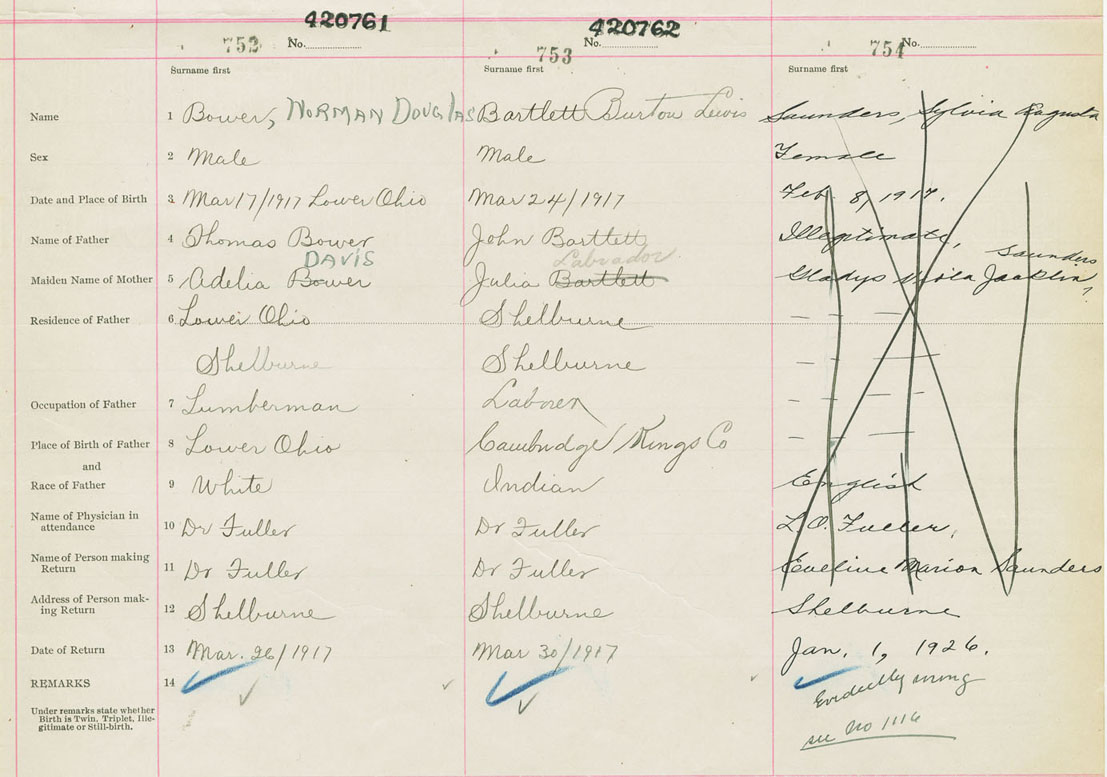 420761 420762
752 No. 753 No. 754 No.
Surname first Surname first Surname first
Name 1 Bower, NORMAN DOUGLAS Bartlett Burton Lewis Saunders, Sylvia Augusta
Sex 2 Male Male Female
Date and Place of Birth 3 Mar 17/1917 Lower Ohio Mar 24/1917 Feb. 8, 1917.
Name of Father 4 Thomas Bower John Bartlett Illegitimate,
DAVIS Labrador Saunders
Maiden Name of Mother 5 Adelia Bower Julia Bartlett Gladys Viola Jacklin,
Residence of Father 6 Lower Ohio Shelburne — —
Shelburne Shelburne — —
Occupation of Father 7 Lumberman Laborer — —
Place of Birth of Father 8 Lower Ohio Cambridge Kings Co — —
and
Race of Father 9 White Indian English
Name of Physician in
attendance 10 Dr Fuller Dr Fuller L. O. Fuller,
Name of Person making
Return 11 Dr Fuller Dr Fuller Eveline Marion Saunders
Address of Person mak-
ing Return 12 Shelburne Shelburne Shelburne
Date of Return 13 Mar. 26/1917 Mar 30/1917 Jan. 1, 1926.
REMARKS 14 Evidently wrong
Under remarks state whether
Birth is Twin, Triplet, Ille-
gitimate or Still-birth.
see No 1116